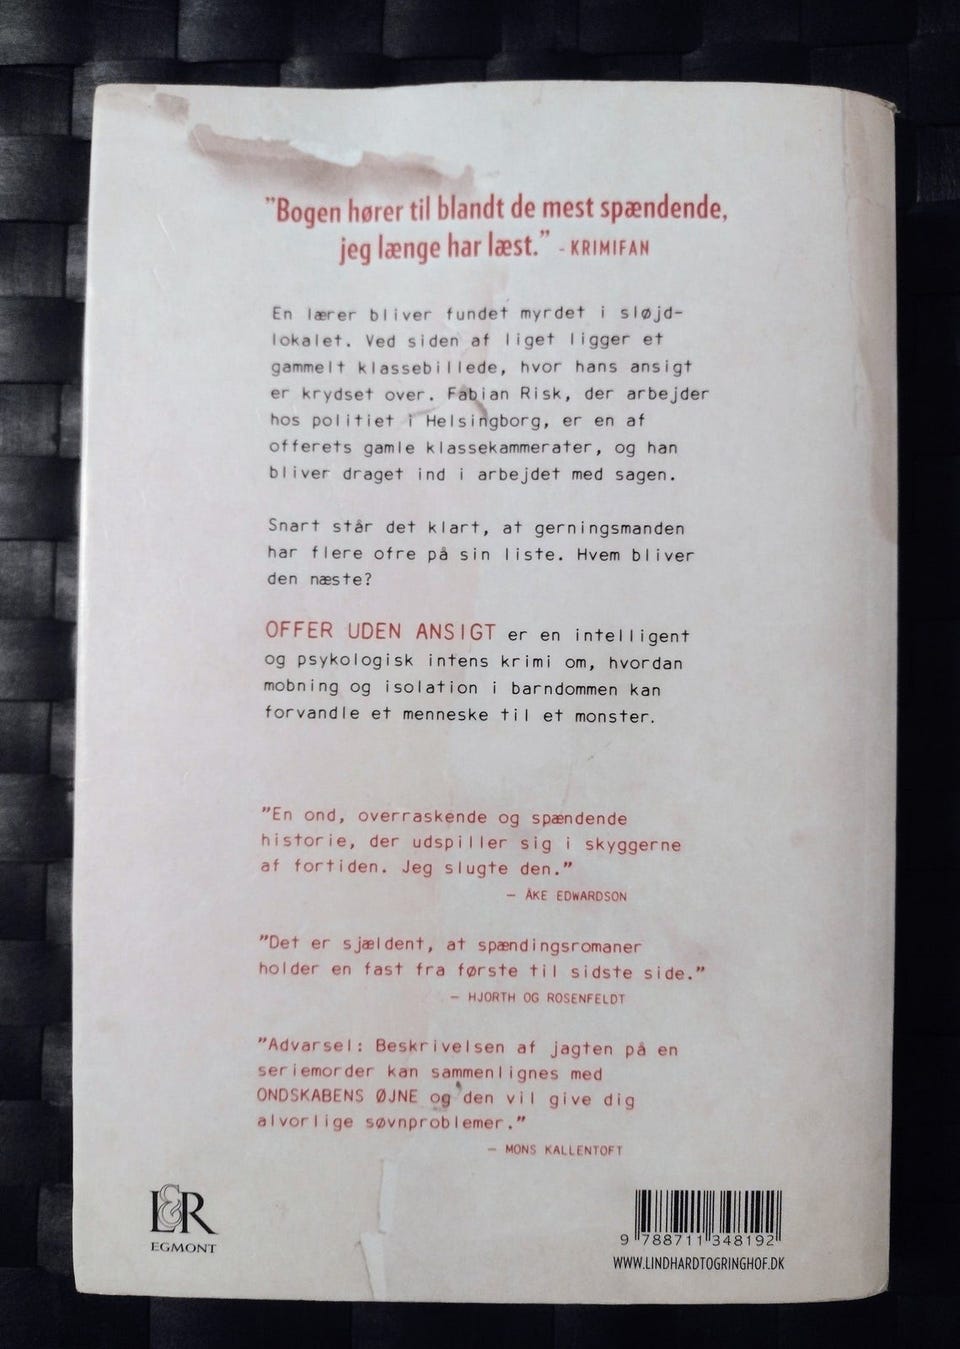 ”Bogen hører til blandt de mest spændende,
jeg længe har læst.” - KRIMIFAN
En lærer bliver fundet myrdet i sløjd-
lokalet. Ved siden af liget ligger et
gammelt klassebillede, hvor hans ansigt
er krydset over. Fabian Risk, der arbejder
hos politiet i Helsingborg, er en af
offerets gamle klassekammerater, og han
bliver draget ind i arbejdet med sagen.
Snart står det klart, at gerningsmanden
har flere ofre på sin liste. Hvem bliver
den næste?
OFFER UDEN ANSIGT er en intelligent
og psykologisk intens krimi om, hvordan
mobning og isolation i barndommen kan
forvandle et menneske til et monster.
”En ond, overraskende og spændende
historie, der udspiller sig i skyggerne
af fortiden. Jeg slugte den.”
— ÅKE EDWARDSON
”Det er sjældent, at spændingsromaner
holder en fast fra første til sidste side.”
— HJORTH OG ROSENFELDT
”Advarsel: Beskrivelsen af jagten på en
seriemorder kan sammenlignes med
ONDSKABENS ØJNE og den vil give dig
alvorlige søvnproblemer.”
— MONS KALLENTOFT
L&R
EGMONT
9 788711 348192
WWW.LINDHARDTOGRINGHOF.DK